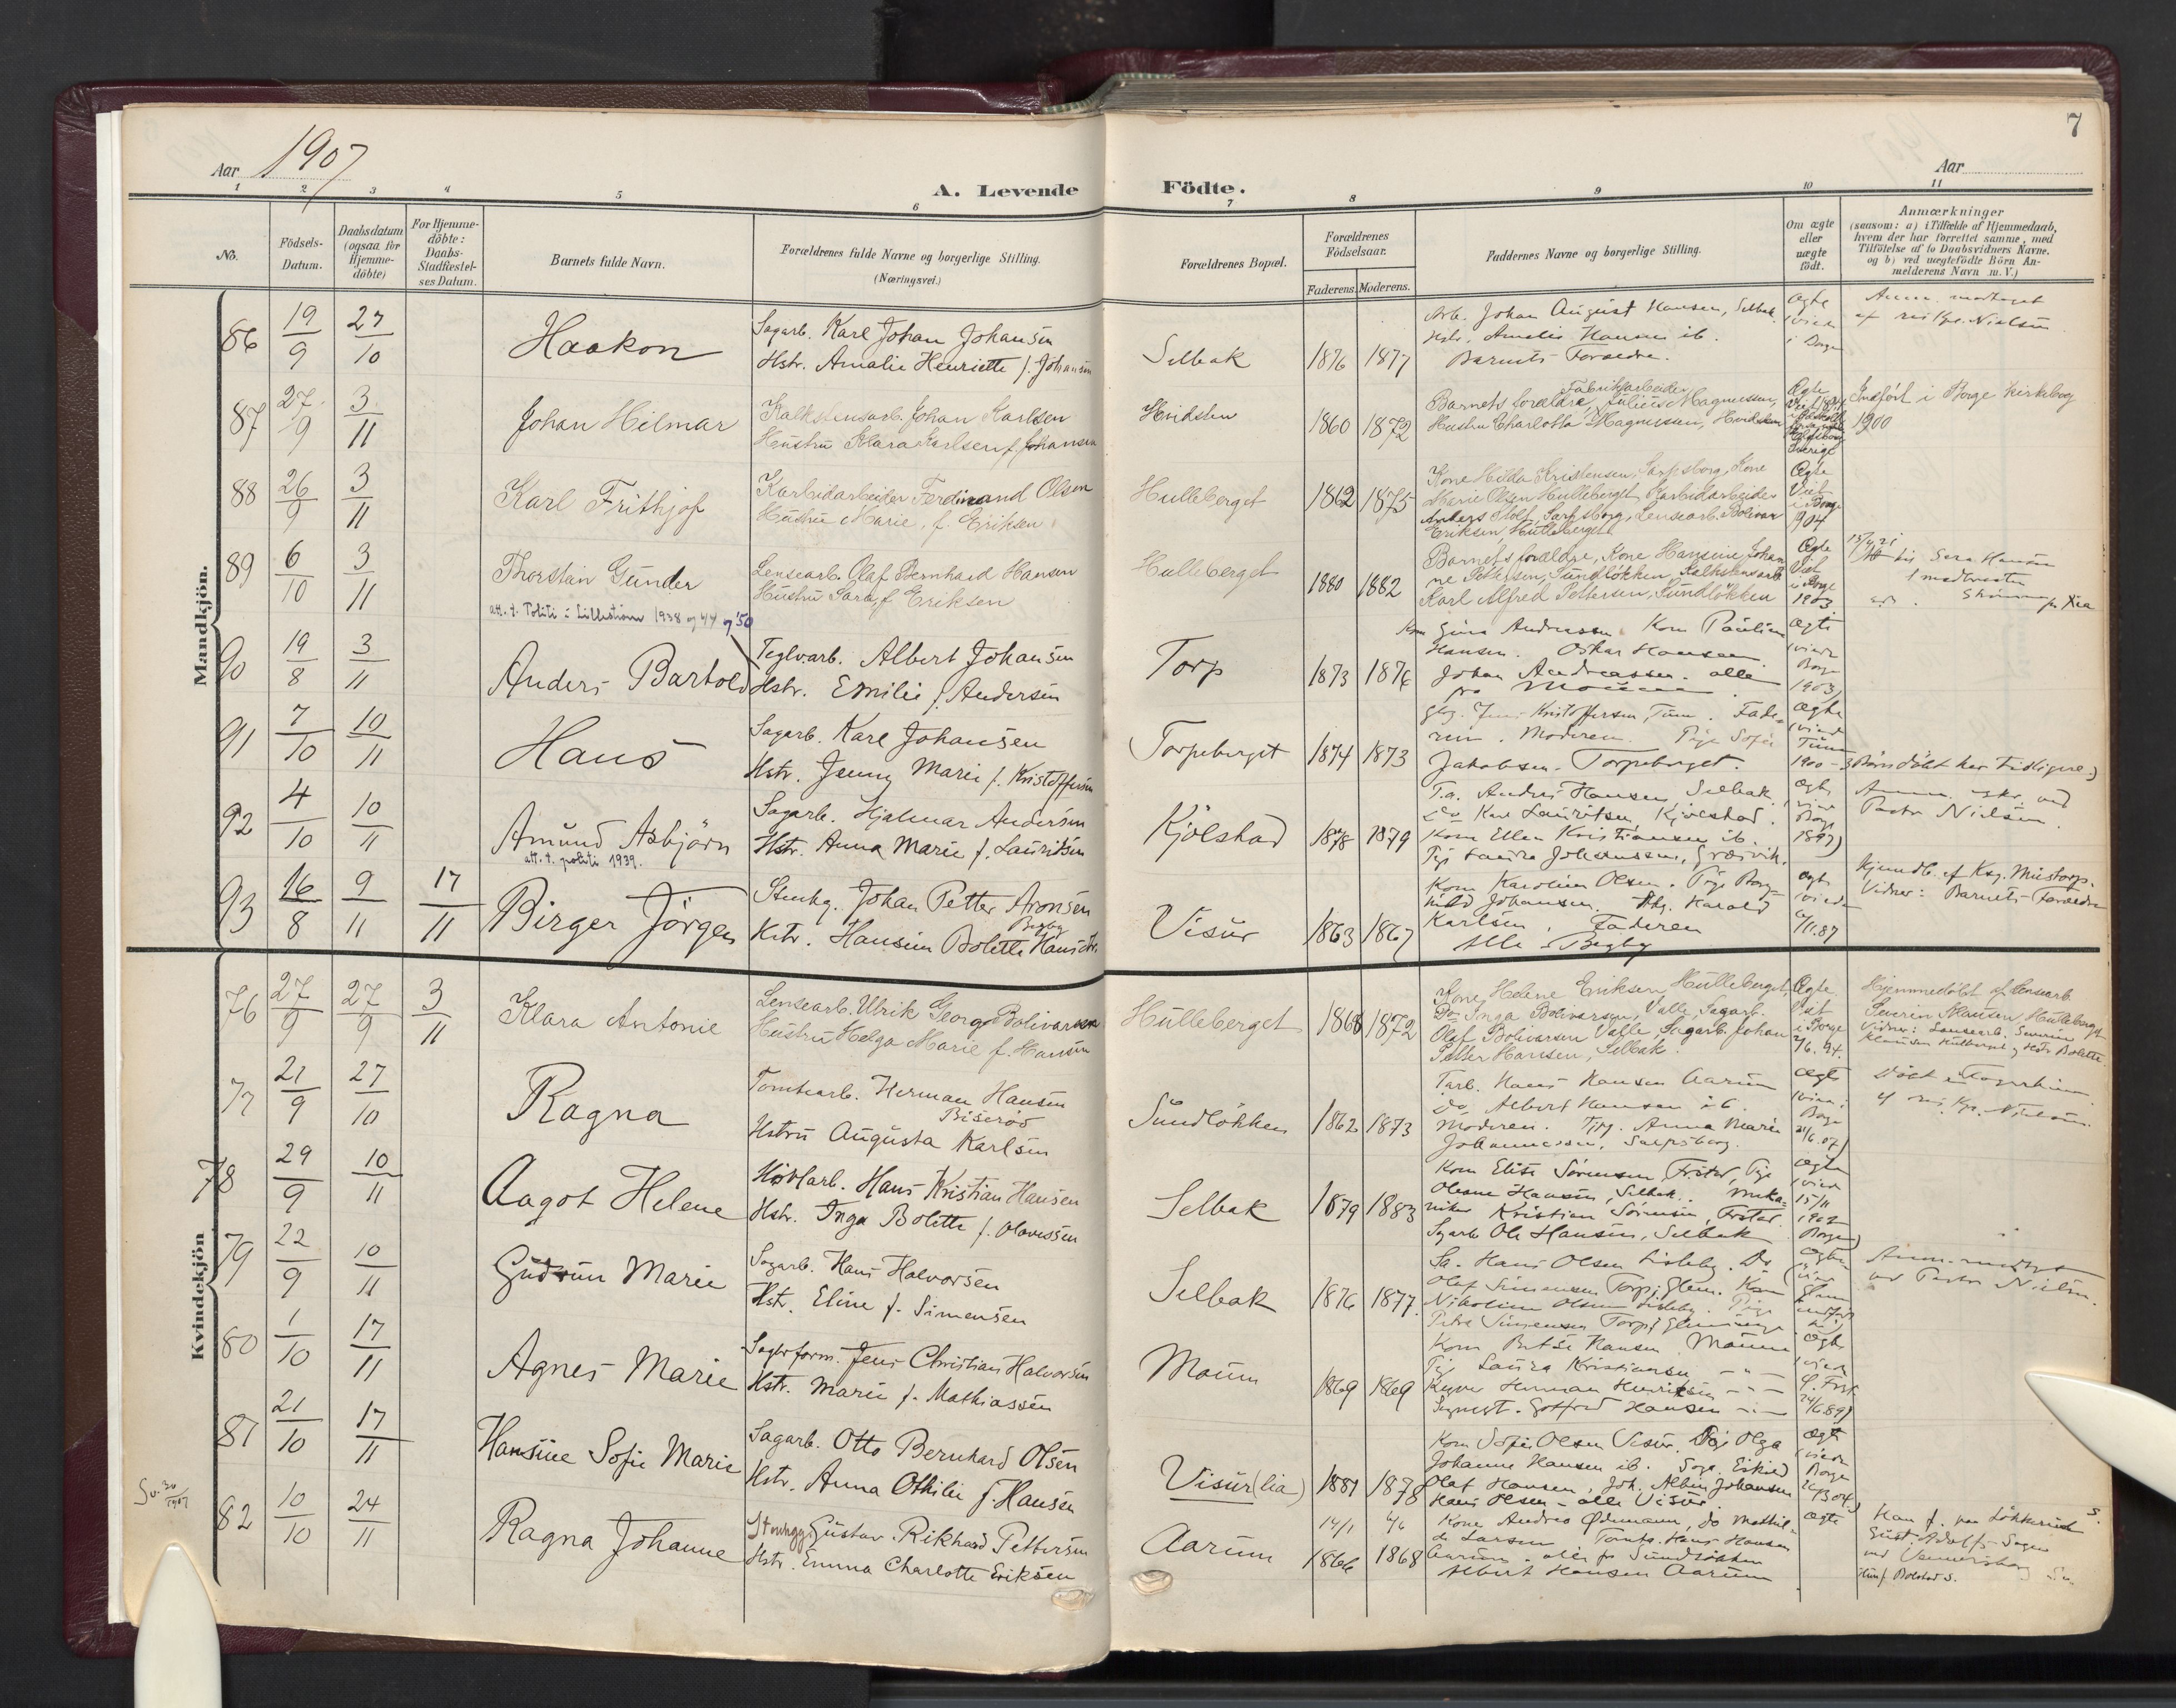 Aar 1907
A. Levende Födte.
Aar
7
1 2 3 4 5 6 7 8 9 10 11
No.
Födsels-Datum.
Daabsdatum (ogsaa for Hjemme-döbte)
For Hjemme-döbte: Daabs-Stadfæstel-ses Datum.
Barnets fulde Navn.
Forældrenes fulde Navne og borgerlige Stilling.
(Næringsvei.)
Forældrenes Bopæl.
Forældrenes Födselsaar.
Faderens. Moderens.
Faddernes Navne og borgerlige Stilling.
Om ægte eller uægte födt.
Anmærkninger
(saasom: a) i Tilfælde af Hjemmedaab, hvem der har forrettet samme, med Tilföielse af to Daabsvidners Navne. og b) ved uægtefödte Börn An-melderens Navn m. V.)
Mandkjön.
86 19/9 27/10 Haakon
Sagarb. Karl Johan Johansen
Hstr. Amalie Henriette f. Johansen
Selbak 1876 1877
Arb. Johan August Hansen, Selbak.
Hstr. Amalie Hansen ib.
Barnets Forældre.
Ægte
i Borge
Anm. modtaget
af res. Kpl. Nielsen
87 27/9 3/11 Johan Hilmar
Kalkstensarb. Johan Karlsen
Hustru Klara Karlsen f. Johansen
Hvidsten 1860 1872
Fabrikarbeider
Barnets forældre, Julius Magnussen,
Hustru Charlotta Magnussen, Hvidsten
Ægte
Sverige
Indfört i Borge Kirkebog
1900
88 26/9 3/11 Karl Frithjof
Karbidarbeider Ferdinand Olsen
Hustru Marie, f. Eriksen
Hulleberget 1862 1875
Kone Hilda Kristensen, Sarpsborg, Kone
Marie Olsen Hulleberget, Karbidarbeider
Anders Stolf, Sarpsborg, Lensearb. Bolivar
Eriksen, Hulleberget
Ægte
Viet
i Borge
904
89 6/10 3/11 Thorstein Gunder
Lensearb. Olaf Bernhard Hansen
Hustru Sara, f. Eriksen
att. t. Politi i Lilleström 1938 og 44 og '50
Hulleberget 1880 1882
Barnets forældre, Kone Hansine Johan
ne Pettersen, Sundlökken, Kalkstensarb.
Karl Alfred Pettersen, Sundlökken
Ægte
Viet
i Borge
1903
90 19/8 3/11 Anders Bartold
Teglv.arb. Albert Johansen
Hstr. Emilie f. Andersen
Torp 1873 1876
Kone Gina Andreassen. Kone Pauline
Hansen. Oskar Hansen.
Johan Andreassen. alle
fra Moum
ægte
(viede
Borge
1903)
91 7/10 10/11 Hans
Sagarb. Karl Johansen
Hstr. Jenny Marie f. Kristoffersen
Torpeberget 1874 1873
Jens Kristoffersen, Tune. Fade-
ren. Moderen. Pige Sofie
Jakobsen. Torpeberget.
ægte
(viede
Tune
1900 - 3 Börn döbt her tidligere.)
92 4/10 10/11 Amund Asbjörn
att. t. politi 1939.
Sagarb. Hjalmar Andersen
Hstr. Anna Marie f. Lauritsen
Kjölstad 1878 1879
Anders Hansen Selbak.
do Karl Lauritsen, Kjölstad.
Kone Ellen Kristiansen ib.
Pige Laura Johanssen, Græsvik.
ægte
Borge
1897)
Pastor Nielsen.
93 16/8 9/11 17/11 Birger Jörgen
Stenhg. Johan Petter Aronsen
Begby
Kstr. Hansine Bolette Hansdtr.
Visur 1863 1867
Kone Karoline Olsen. Pige Borg-
hild Johansen. Harald
Karlsen, Faderen
Alle Begby
ægte
(viede
/11.87
Hjemdb. af Ksg. Mustorp.
Vidner: Barnets Forældre
Kvindekjön
76 27/9 27/9 3/11 Klara Antonie
Lensearb. Ulrik Georg Bolivarsen
Hustru Helga Marie f. Hansen
Hulleberget 1868 1872
Kone Helene Eriksen Hulleberget,
Do Inga Bolivarsen, Valle, Sagarb.
Olaf Bolivarsen Valle, Sagarb. Johan
Petter Hansen, Selbak.
Ægte
Viet
i Borge
2/6. 94.
Hjemmedöbt af Lensearb.
Severin Klausen Hulleberget
Vidner: Lensearb. Severin
Klausen Hulleberget og Hstr. Bolette
77 21/9 27/10 Ragna
Tomtearb. Herman Hansen
Biseröd
Hstru Augusta Karlsen
Sundlökken 1862 1873
Tarb. Hans Hansen Aarum
do. Albert Hansen ib.
Moderen. Pige Anna Marie
Johannesen, Sarpsborg.
ægte
(viede i
Borge
21/6.07)
af res. Kpl. Nielsen.
78 29/9 10/11 Aagot Helene
Hövlarb. Hans Kristian Hansen
Hstr. Inga Bolette f. Olavessen
Selbak 1879 1883
Kone Elise Sörensen, Frstad, Pige
Oleane Hansen, Selbak. Meka-
niker Kristian Sörensen, Frstad.
Sagarb. Ole Hansen, Selbak
ægte
(viede
15/11
Borge)
79 22/9 10/11 Gudrun Marie
Sagarb. Hans Halvorsen
Hstr. Eline f. Simensen
Selbak 1876 1877.
Sa. Hans Olsen Lisleby. Do
Olaf Simensen Torp, Glem. Kone
Nikoline Olsen Lisleby. Pige
Petra Simensen Torp, Glemminge
ægte
ved Pastor Nielsen.
80 1/10 17/11 Agnes Marie
Sagbrform. Jens Christian Halvorsen
Hstr. Marie f. Mathiassen
Moum 1869 1869
Kone Betsi Hansen Moum
Pige Laura Kristiansen - " -
Herman Henriksen - " -
Gotfred Hansen - " -
ægte
(viede
24/6 89)
81 21/10 17/11 Hansine Sofie Marie
Sagarb. Otto Bernhard Olsen
Hstr. Anna Othilie f. Hansen
Visur (lia) 1881 1878
Kone Sofie Olsen Visur. Pige Olga
Johanne Hansen ib.
Olaf Hansen, Joh. Albin Johansen
Hans Olsen - alle Visur.
ægte
(viede
Borge
Sv. 30/1907
82 10/10 24/11 Ragna Johanne
Stenhgg. Gustav Rikhard Pettersen
Hstr. Emma Charlotte Eriksen
Aarum 14/1 1866 4/6 1868
Kone Andrea Ödemann, do Mathil-
de Larsen Tomta. Hans Hansen
Aarum. alle fr Sundlökken
Albert Hansen Aarum
ægte
Gust. Adolfs Sogn
ved Venersborg